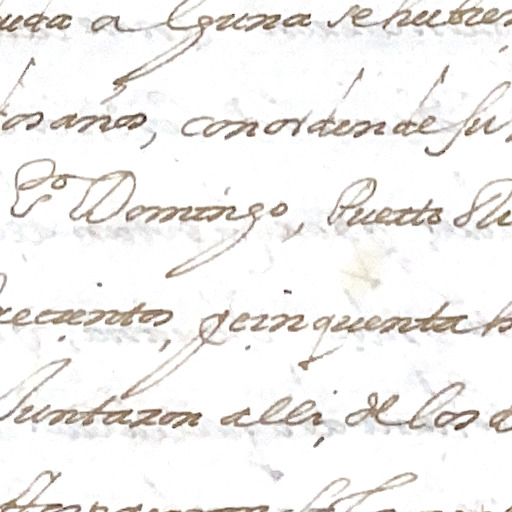 uda alguna se hubies
os años, con orden de Su
Sto Domingo, Puerto
recientos, y cinquenta h
Juntaron alli, de los